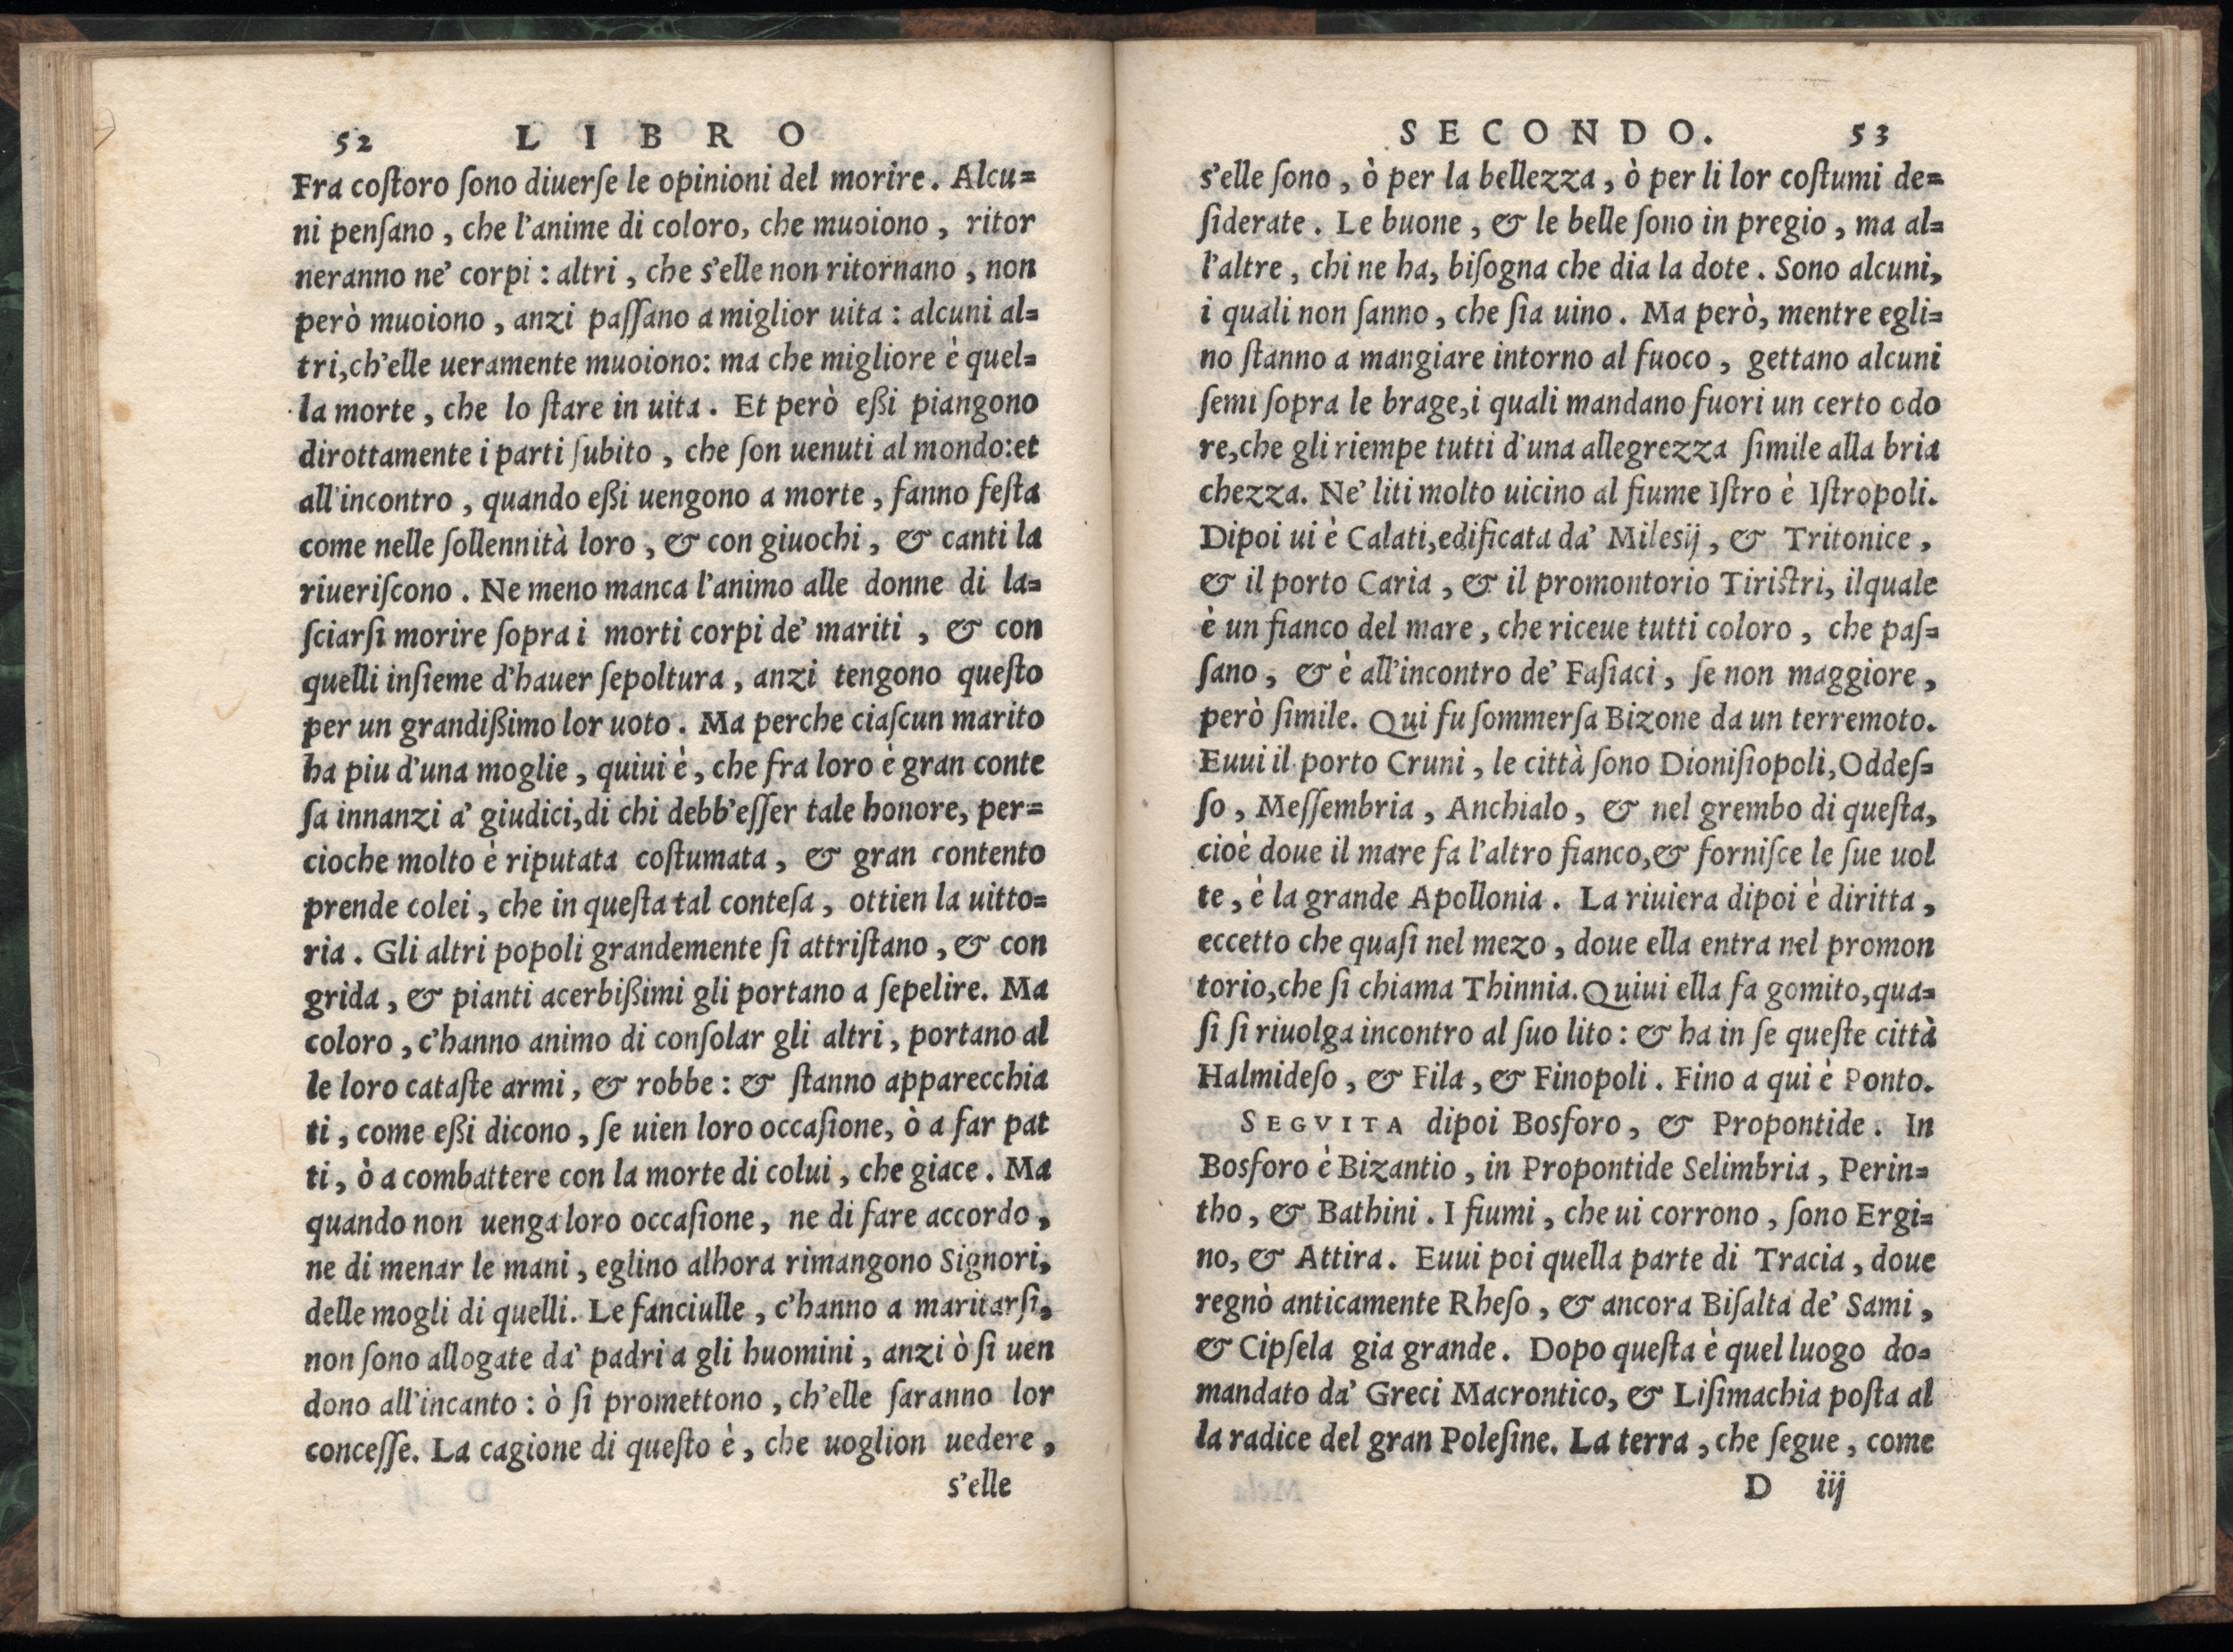 52 LIBRO
Fra coſtoro ſono diuerſe le opinioni del morire. Alcu=
ni penſano, che l'anime di coloro, che muoiono, ritor
neranno ne' corpi: altri, che s'elle non ritornano, non
però muoiono, anzi paſſano a miglior uita: alcuni al=
tri, ch'elle ueramente muoiono: ma che migliore è quel=
la morte, che lo ſtare in uita. Et però eßi piangono
dirottamente i parti ſubito, che ſon uenuti al mondo: et
all'incontro, quando eßi uengono a morte, fanno feſta
come nelle ſollennità loro, & con giuochi, & canti la
riueriſcono. Ne meno manca l'animo alle donne di la=
ſciarſi morire ſopra i morti corpi de' mariti, & con
quelli inſieme d'hauer ſepoltura, anzi tengono queſto
per un grandißimo lor uoto. Ma perche ciaſcun marito
ha piu d'una moglie, quiui è, che fra loro è gran conte
ſa innanzi a' giudici, di chi debb'eſſer tale honore, per=
cioche molto è riputata coſtumata, & gran contento
prende colei, che in queſta tal conteſa, ottien la uitto=
ria. Gli altri popoli grandemente ſi attriſtano, & con
grida, & pianti acerbißimi gli portano a ſepelire. Ma
coloro, c'hanno animo di conſolar gli altri, portano al
le loro cataſte armi, & robbe: & ſtanno apparecchia
ti, come eßi dicono, ſe uien loro occaſione, ò a far pat
ti, ò a combattere con la morte di colui, che giace. Ma
quando non uenga loro occaſione, ne di fare accordo,
ne di menar le mani, eglino alhora rimangono Signori,
delle mogli di quelli. Le fanciulle, c'hanno a maritarſi,
non ſono allogate da' padri a gli huomini, anzi ò ſi uen
dono all'incanto: ò ſi promettono, ch'elle ſaranno lor
conceſſe. La cagione di queſto è, che uoglion uedere,
s'elle
SECONDO. 53
s'elle ſono, ò per la bellezza, ò per li lor coſtumi de=
ſiderate. Le buone, & le belle ſono in pregio, ma al=
l'altre, chi ne ha, biſogna che dia la dote. Sono alcuni,
i quali non ſanno, che ſia uino. Ma però, mentre egli=
no ſtanno a mangiare intorno al fuoco, gettano alcuni
ſemi ſopra le brage, i quali mandano fuori un certo odo
re, che gli riempe tutti d'una allegrezza ſimile alla bria
chezza. Ne' liti molto uicino al fiume Iſtro è Iſtropoli.
Dipoi ui è Calati, edificata da' Milesij, & Tritonice,
& il porto Caria, & il promontorio Tiriſtri, ilquale
è un fianco del mare, che riceue tutti coloro, che paſ=
ſano, & è all'incontro de' Faſiaci, ſe non maggiore,
però ſimile. Qui fu ſommerſa Bizone da un terremoto.
Euui il porto Cruni, le città ſono Dioniſiopoli, Oddeſ=
ſo, Meſſembria, Anchialo, & nel grembo di queſta,
cioè doue il mare fa l'altro fianco, & forniſce le ſue uol
te, è la grande Apollonia. La riuiera dipoi è diritta,
eccetto che quaſi nel mezo, doue ella entra nel promon
torio, che ſi chiama Thinnia. Quiui ella fa gomito, qua=
ſi ſi riuolga incontro al ſuo lito: & ha in ſe queſte città
Halmideſo, & Fila, & Finopoli. Fino a qui è Ponto.
SEGVITA dipoi Bosforo, & Propontide. In
Bosforo è Bizantio, in Propontide Selimbria, Perin=
tho, & Bathini. I fiumi, che ui corrono, ſono Ergi=
no, & Attira. Euui poi quella parte di Tracia, doue
regnò anticamente Rheſo, & ancora Biſalta de' Sami,
& Cipſela gia grande. Dopo queſta è quel luogo do=
mandato da' Greci Macrontico, & Liſimachia poſta al
la radice del gran Poleſine. La terra, che ſegue, come
D iij